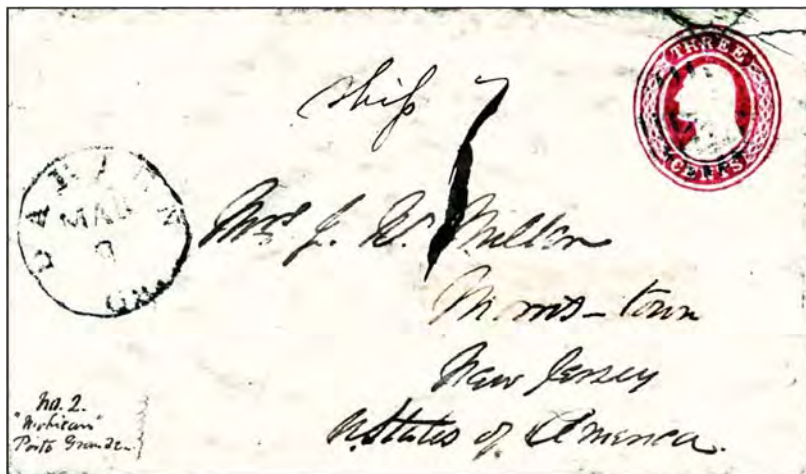 THREE
CENTS
ship
DARIEN
MAR
GEO
Mrs J. W. Miller
Morris-town
New Jersey
U. States of America.
No. 2.
"Mohican"
Porto Grande